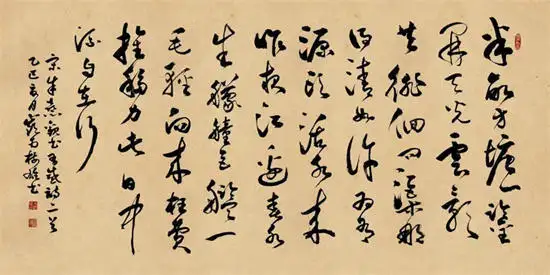 半畝方塘一鑑
開天光雲影
共徘徊問渠那
得清如許為有
源頭活水來
昨夜江邊春水
生艨艟巨艦一
毛輕向來枉費
推移力此日中
流自在行
宋朱熹觀書有感詩二首
乙巳 月 書